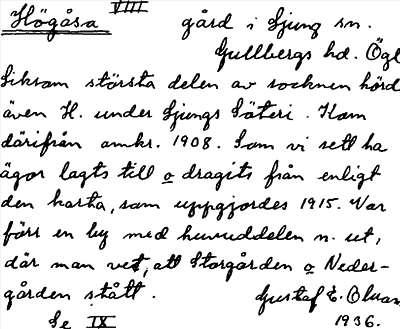 Högåsa VIII gård i Ljung sn.
Gullbergs hd. Ögl
Liksom största delen av socknen hörd
även H. under Ljungs Säteri. Kom
därifrån omkr. 1908. Som vi sett ha
ägor lagts till o dragits från enligt
den karta, som uppgjordes 1915. Var
förr en by med huvuddelen n. ut,
där man vet, att Storgården o Neder-
gården stått. Gustaf E. Olsson
Se IX 1936.